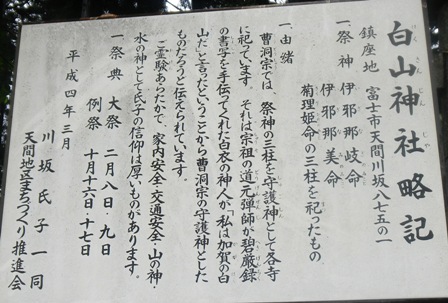 白山神社略記
鎮座地 富士市天間川坂八七五の一
一.祭神 伊邪那岐命
伊邪那美命
菊理姫命の三柱を祀ったもの
一.由緒
曹洞宗では、祭神の三柱を守護神として各寺
に祀っています それは宗祖の道元弾師が碧厳録
の書写を手伝ってくれた白衣の神人が「私は加賀の白
山だ」と言ったということから曹洞宗の守護神とした
ものだろうと伝えられています。
ご霊験あらたかで、家内安全・交通安全・山の神・
水の神として氏子の信仰は厚いものがあります。
一祭典 大祭 二月八日・九日
例祭 十月十六日・十七日
平成四年三月
川坂氏子一同
天間地区まちづくり推進会